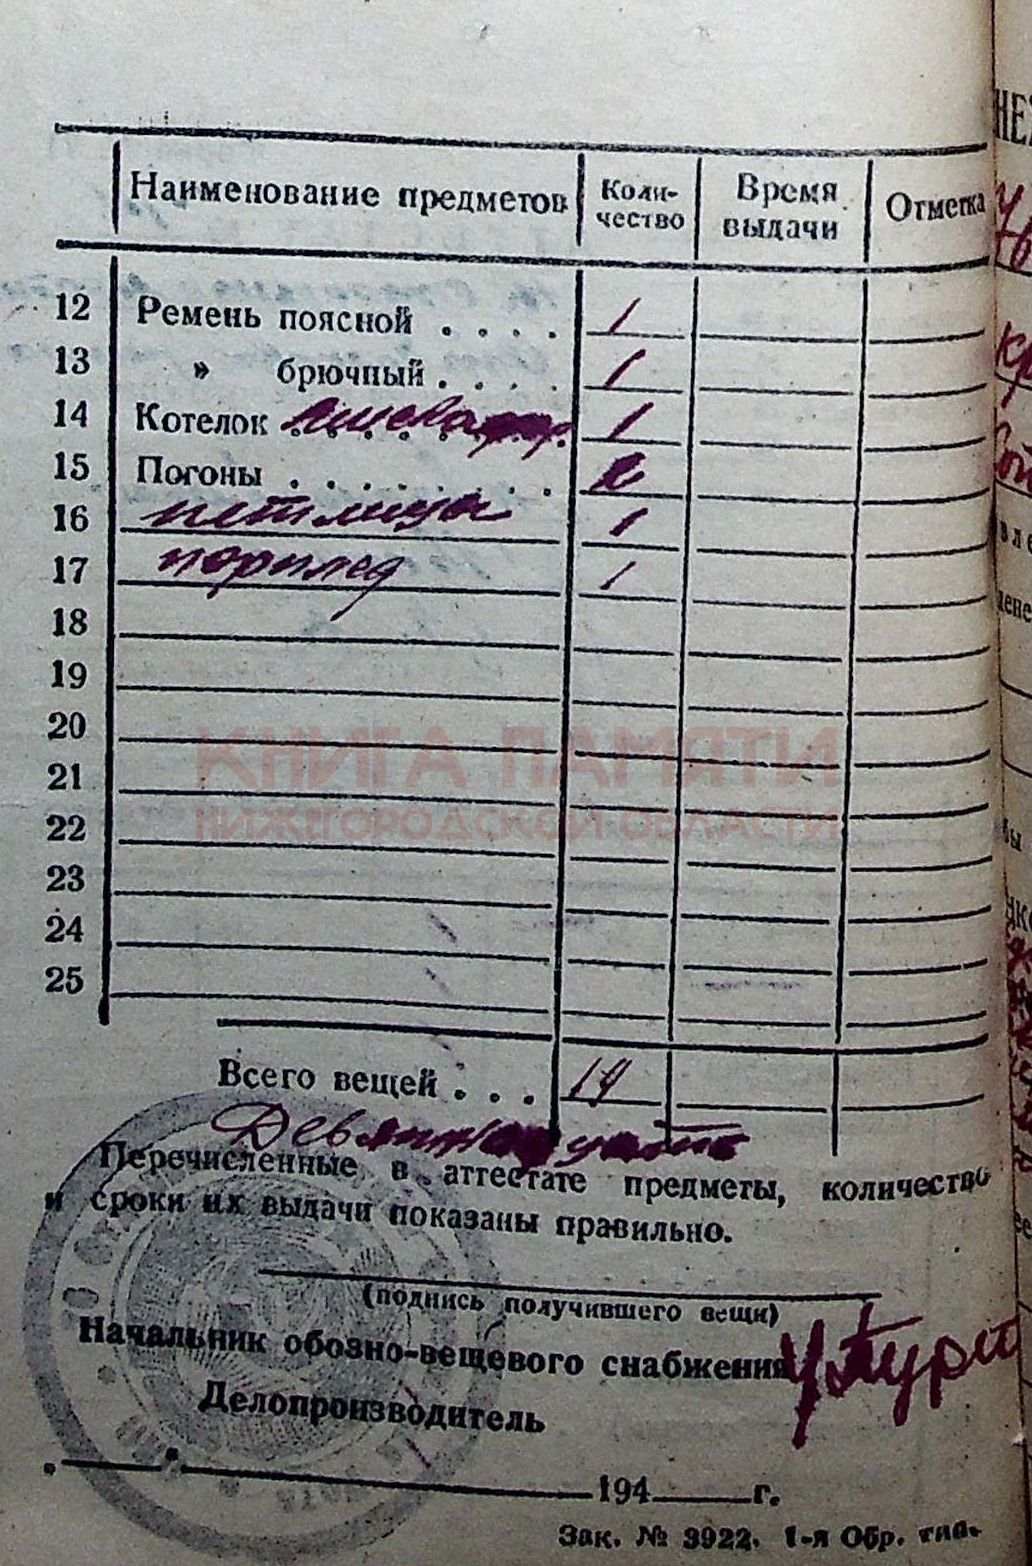 Наименование предметов Коли-чество Время выдачи Отметка
12 Ремень поясной . . . . 1
13 » брючный . . . . 1
14 Котелок 1
15 Погоны . . . . . . . . .
16 петлицы 1
17 1
18
19
20
21
22
23
24
25
КНИГА ПАМЯТИ
НИЖЕГОРОДСКОЙ ОБЛАСТИ
Всего вещей . . . 19
Девятнадцать
Перечисленные в аттестате предметы, количество
и сроки их выдачи показаны правильно.
(подпись получившего вещи)
Начальник обозно-вещевого снабжения
Делопроизводитель
194 г.
Зак. № 3922. 1-я Обр. тип.